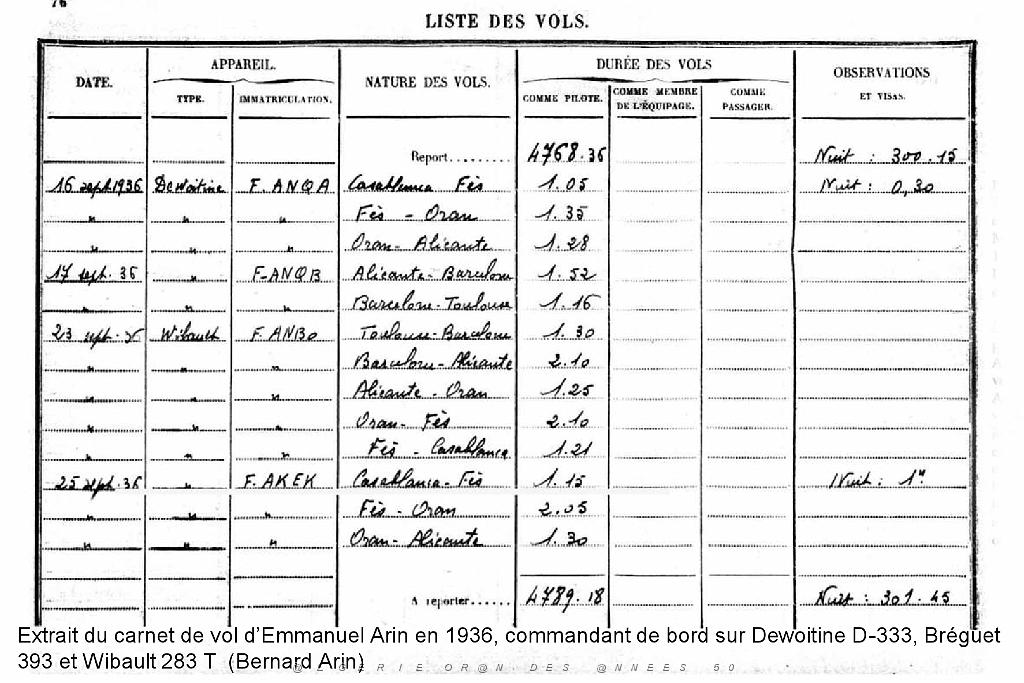 76
LISTE DES VOLS.
DATE. APPAREIL. NATURE DES VOLS. DURÉE DES VOLS OBSERVATIONS ET VISAS.
TYPE. IMMATRICULATION. COMME PILOTE. COMME MEMBRE DE L'ÉQUIPAGE. COMME PASSAGER.
Report......... 4768.36 Nuit : 300.15
16 sept. 1936 Dewoitine F.ANQA Casablanca Fès 1.05 Nuit : 0,30
" " " Fès - Oran 1.35
" " " Oran - Alicante 1.28
17 sept. 36 " F-ANQB Alicante - Barcelone 1.52
" " " Barcelone - Toulouse 1.16
23 sept. 36 Wibault F.ANBO Toulouse - Barcelone 1.30
" " " Barcelone - Alicante 2.10
" " " Alicante - Oran 1.25
" " " Oran - Fès 2.10
" " " Fès - Casablanca 1.21
25 sept. 36 " F.AKEK Casablanca - Fès 1.15 Nuit : 1"
" " " Fès - Oran 2.05
" " " Oran - Alicante 1.30
A reporter...... 4789.18 Nuit : 301.45
Extrait du carnet de vol d'Emmanuel Arin en 1936, commandant de bord sur Dewoitine D-333, Bréguet
393 et Wibault 283 T (Bernard Arin)
@LGERIE OR@N DES @NNEES 50